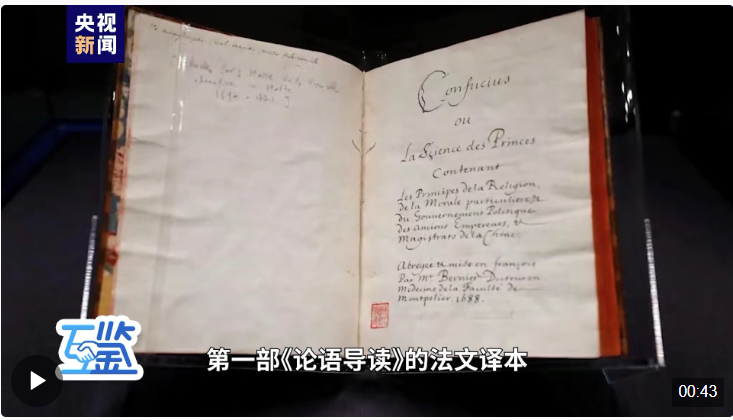 央视
新闻
Confucius
ou
La Science des Princes
Contenant
Les Principes de la Religion,
de la Morale particuliere,
du Gouvernement Politique
des anciens Empereurs, &
Magistrats de la Chine.
Abregée & mise en françois
Par Mr. Bernier Docteur en
Medecine de la Faculté de
Montpelier. 1688.
互鉴
第一部《论语导读》的法文译本
00:43